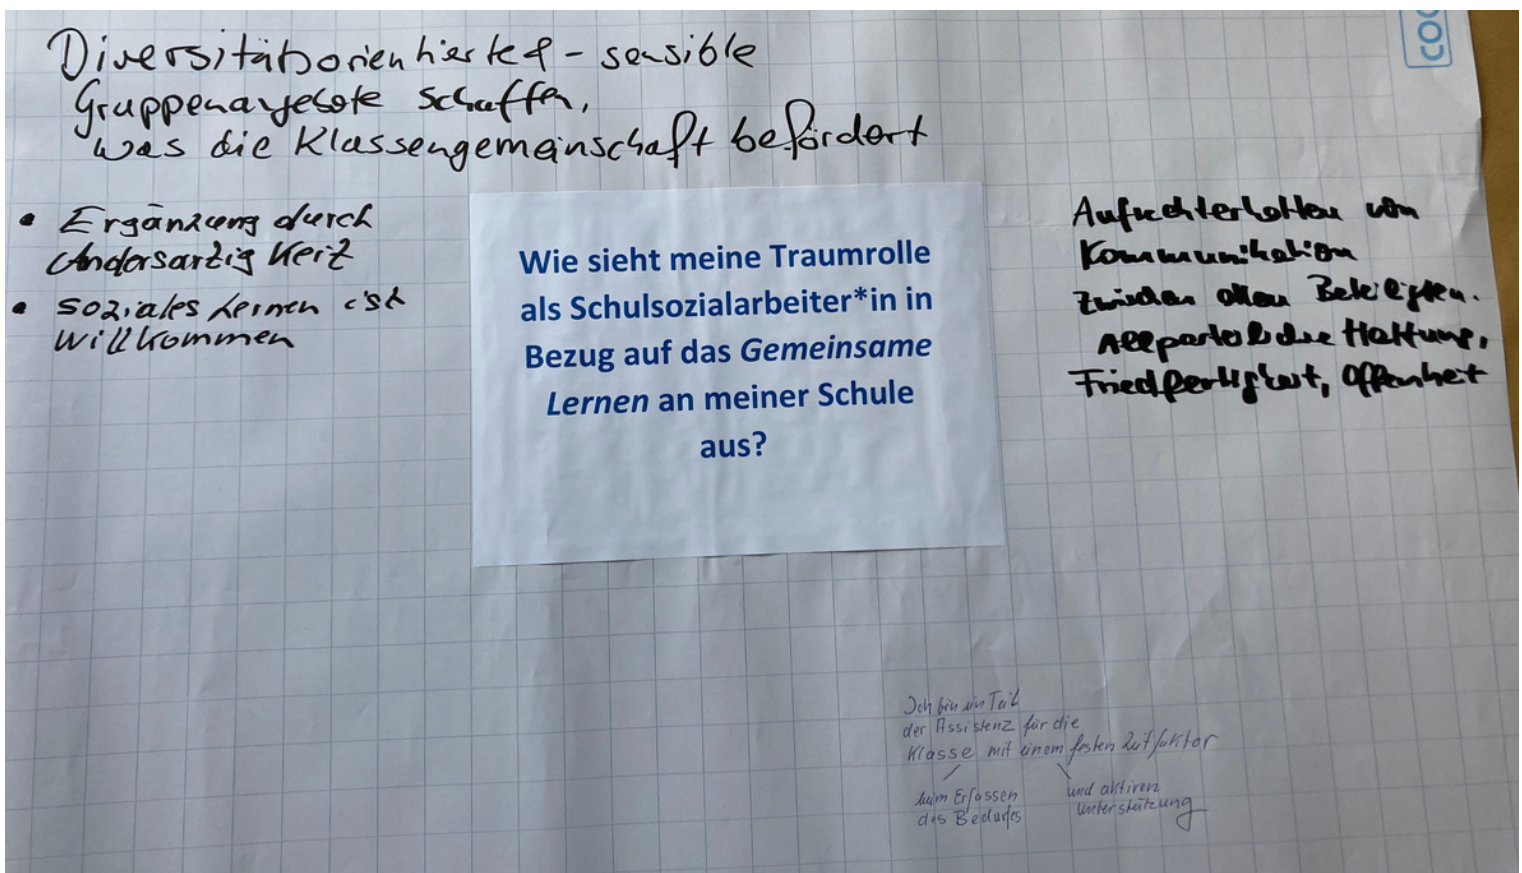 Diversitätsorientierte & - sensible
Gruppenangebote schaffen,
was die Klassengemeinschaft befördert
• Ergänzung durch
Andersartigkeit
• soziales Lernen ist
willkommen
Wie sieht meine Traumrolle
als Schulsozialarbeiter*in in
Bezug auf das Gemeinsame
Lernen an meiner Schule
aus?
Aufrechterhalten von
Kommunikation
zwischen allen Beteiligten.
Allparteiliche Haltung,
Friedfertigkeit, Offenheit
Ich bin ein Teil
der Assistenz für die
Klasse mit einem festen Zeitfaktor
beim Erfassen
des Bedarfes
und aktiren
Unterstützung